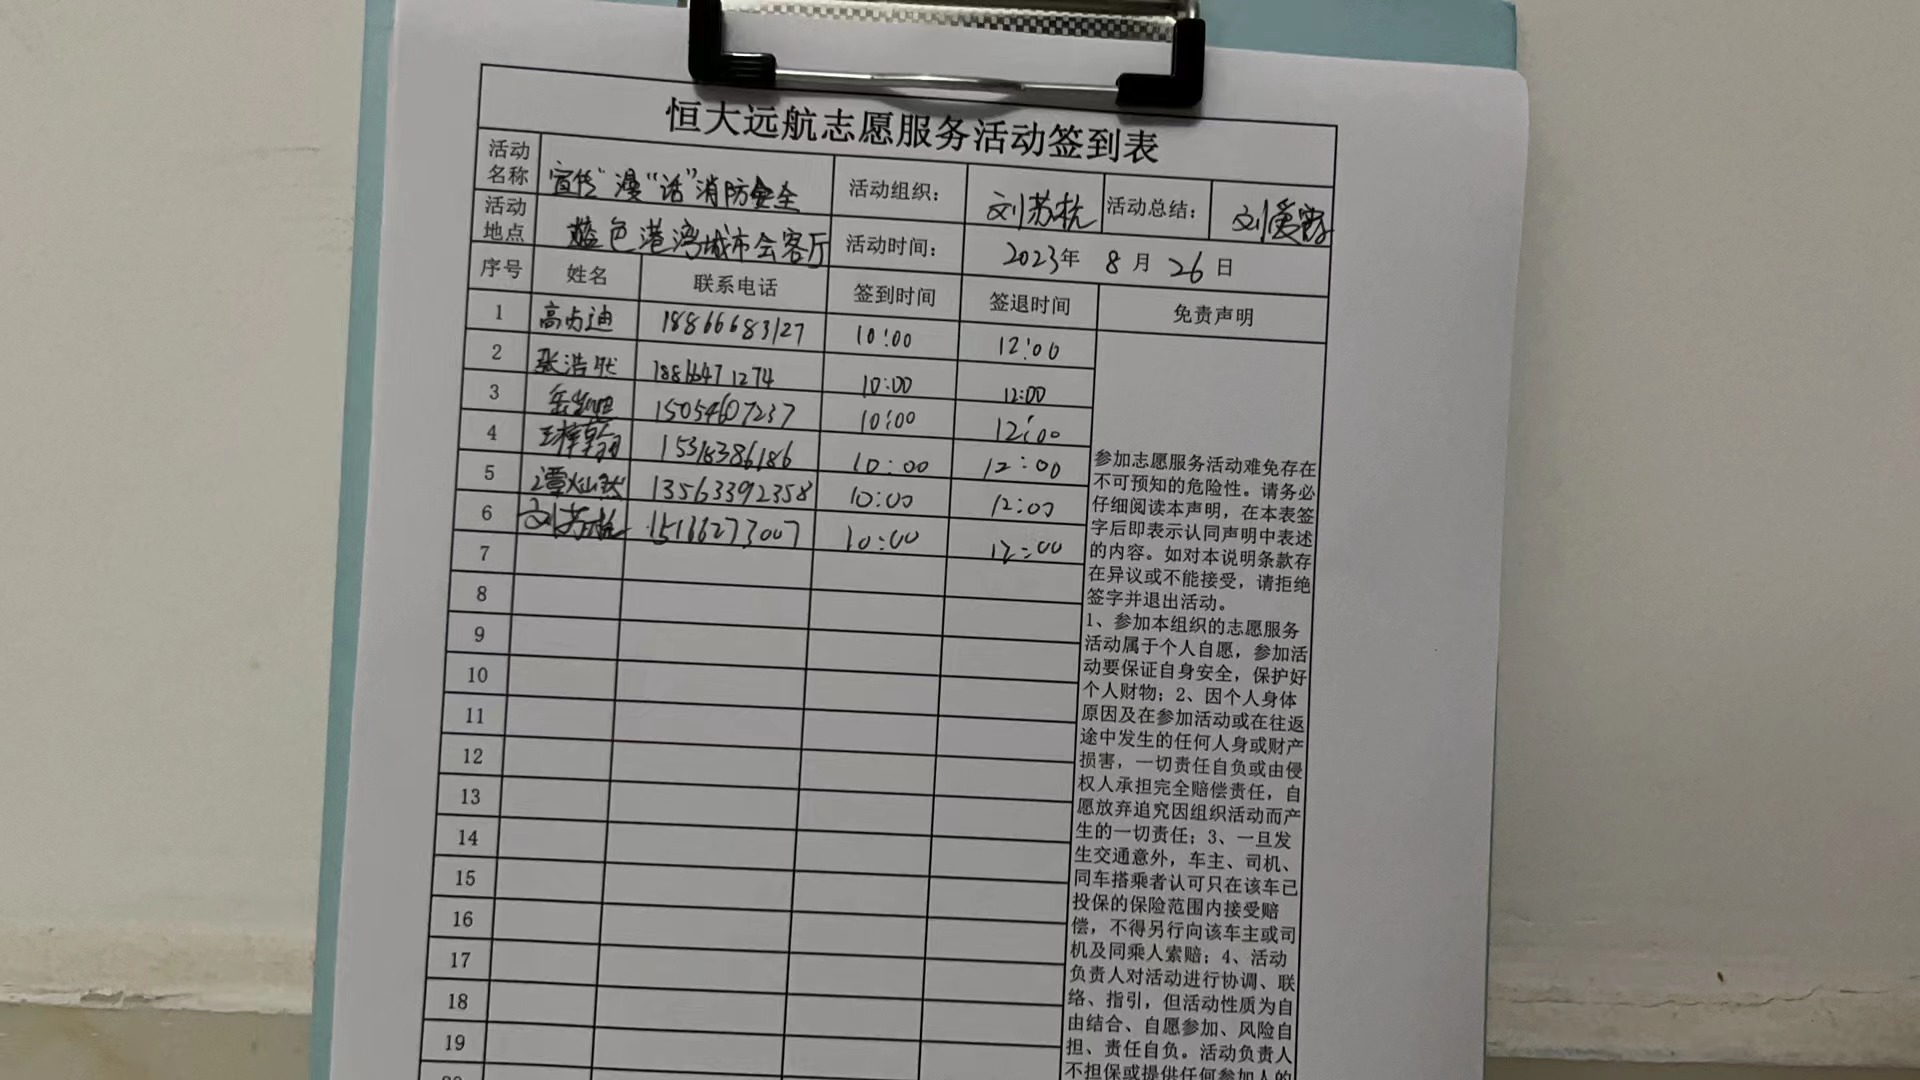 恒大远航志愿服务活动签到表
活动名称 宣传"漫"话"消防安全 活动组织： 刘苏杭 活动总结： 刘爱
活动地点 蓝色港湾城市会客厅 活动时间： 2023年 8 月 26 日
序号 姓名 联系电话 签到时间 签退时间 免责声明
1 高 迪 18866683127 10:00 12:00
2 张浩 18866471274 10:00 12:00
3 岳 15054607237 10:00 12:00
4 王梓翰 15318386186 10:00 12:00
5 谭灿 13563392358 10:00 12:00
6 刘苏杭 15166273007 10:00 12:00
7
8
9
10
11
12
13
14
15
16
17
18
19
参加志愿服务活动难免存在
不可预知的危险性。请务必
仔细阅读本声明，在本表签
字后即表示认同声明中表述
的内容。如对本说明条款存
在异议或不能接受，请拒绝
签字并退出活动。
1、参加本组织的志愿服务
活动属于个人自愿，参加活
动要保证自身安全，保护好
个人财物；2、因个人身体
原因及在参加活动或在往返
途中发生的任何人身或财产
损害，一切责任自负或由侵
权人承担完全赔偿责任，自
愿放弃追究因组织活动而产
生的一切责任；3、一旦发
生交通意外，车主、司机、
同车搭乘者认可只在该车已
投保的保险范围内接受赔
偿，不得另行向该车主或司
机及同乘人索赔；4、活动
负责人对活动进行协调、联
络、指引，但活动性质为自
由结合、自愿参加、风险自
担、责任自负。活动负责人
不担保或提供任何参加人的